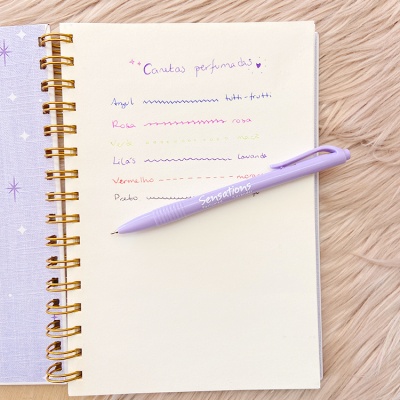 Canetas perfumadas
Azul tutti-frutti
Rosa rosa
Verde
Lilás Lavanda
Vermelho
Preto
Sensations